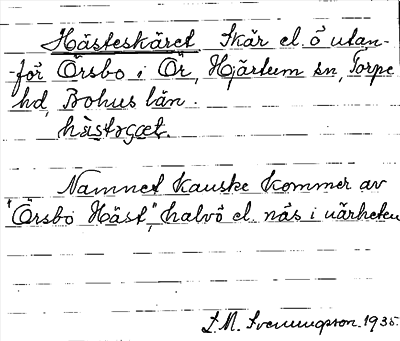 Hästeskäret Skär el. ö utan-
-för Örsbo i Ör, Hjärtum sn, Torpe
hd, Bohus län.
hästsgæt.
Namnet kanske kommer av
"Örsbo Häst", halvö el. näs i närheten
1935.